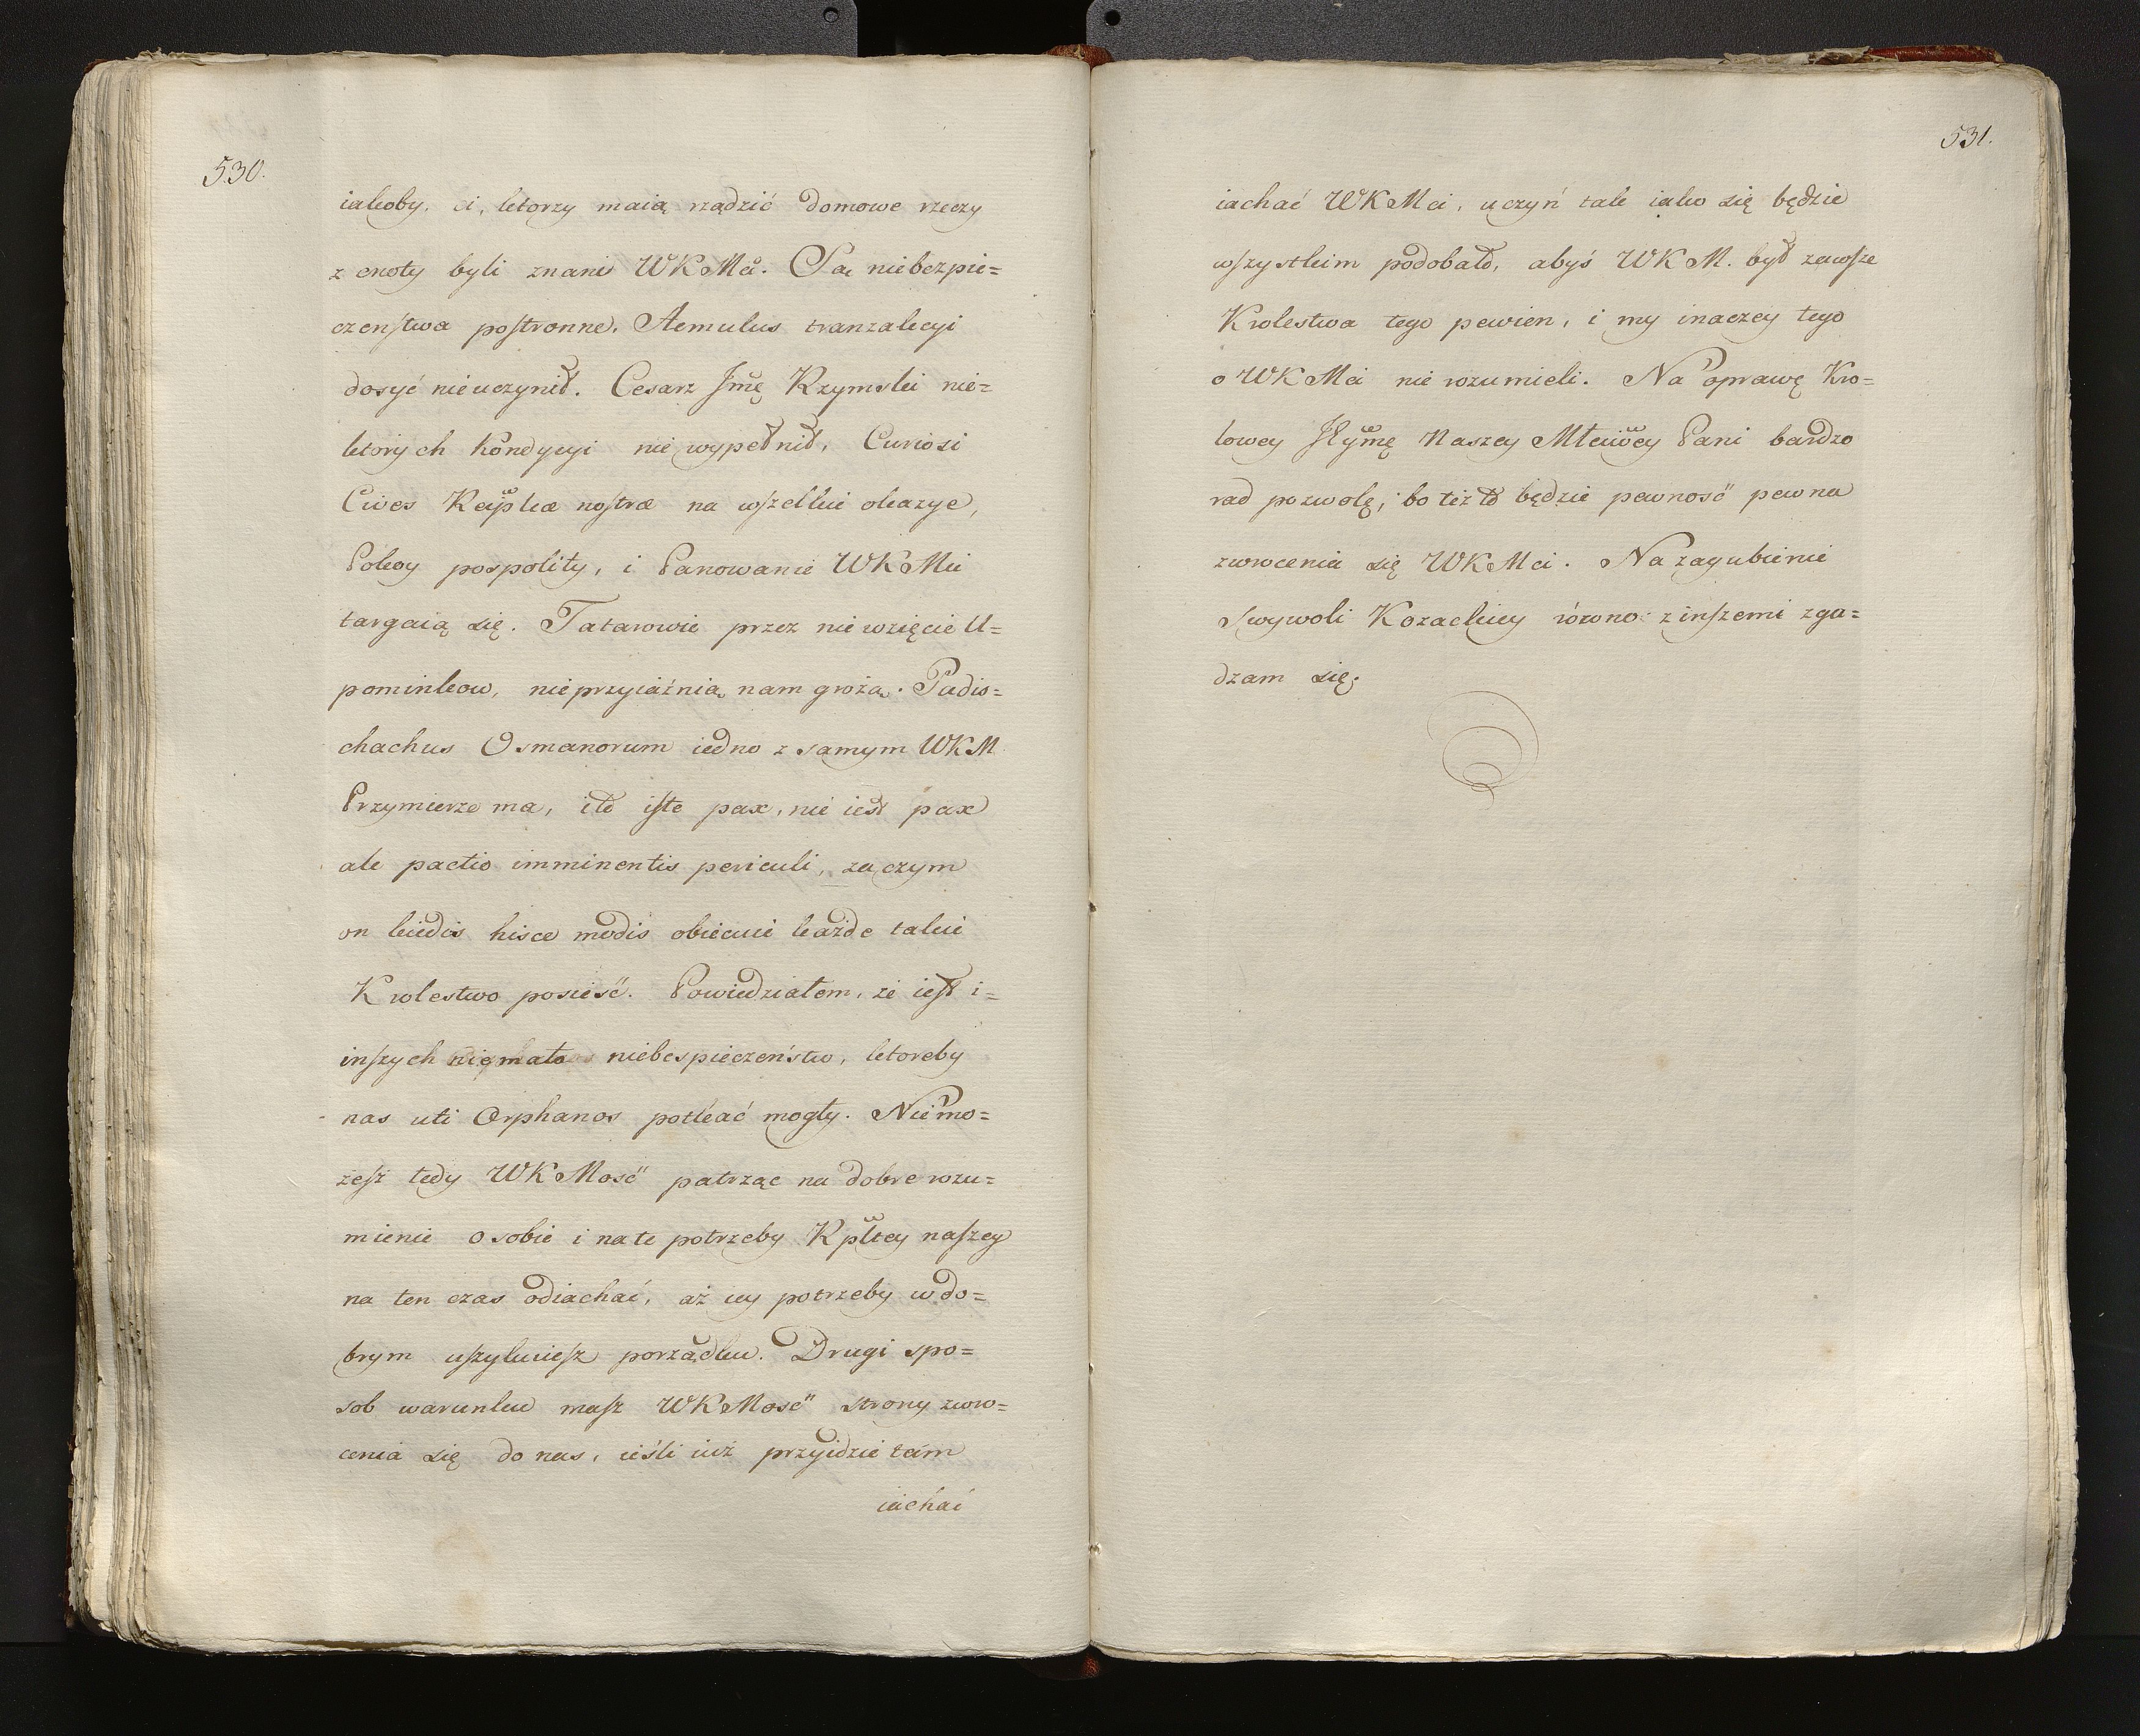 530.
iakoby, ci, ktorzy maią rządzić domowe rzeczy
z cnoty byli znani WKMci. Są niebezpie=
czenstwa postronne. Aemulus tranzakcyi
dosyć nieuczynił. Cesarz Jmę Rzymski nie=
ktorych kondycyi nie wypełnił, Curiosi
Cives Reipłcæ nostræ na wszelkie okazye,
Pokoy pospolity, i Panowanie WKMci
targaią się. Tatarowie przez nie wzięcie U=
pominkow, nieprzyiaźnią nam grożą. Padis=
chachus Osmanorum iedno z samym WKM
Przymierze ma, ite iste pax, nie iest pax
ale pactio imminentis periculi, zaczym
on kiedis hisce modis obiecuie każde takie
Krolestwo posieść. Powiedziałem, że iest i=
inszych niemało niebespieczeństw, ktoreby
nas uti Orphanos potkać mogły. Nie mo=
żesz tedy WKMość patrząc na dobre rozu=
mienie o sobie i na te potrzeby Rpłtey naszey
na ten czas odiachać, aż iey potrzeby w do=
brym uszykuiesz porządku. Drugi spo=
sob warunku masz WKMość strony zwro=
cenia się do nas, ieśli iuż przyidzie tam
iachać
531.
iachać WKMci, uczyń tak iako się będzie
wszystkim podobało, abyś WKM. był zawsze
Krolestwa tego pewien, i my inaczey tego
o WKMci nie rozumieli. Na oprawę Kro=
lowey Jeymę Naszey Młciwey Pani bardzo
rad pozwolę, bo też to będzie pewność pewna
zwrocenia się WKMci. Na zagubienie
Swywoli Kozackiey rowno z inszemi zga=
dzam się.